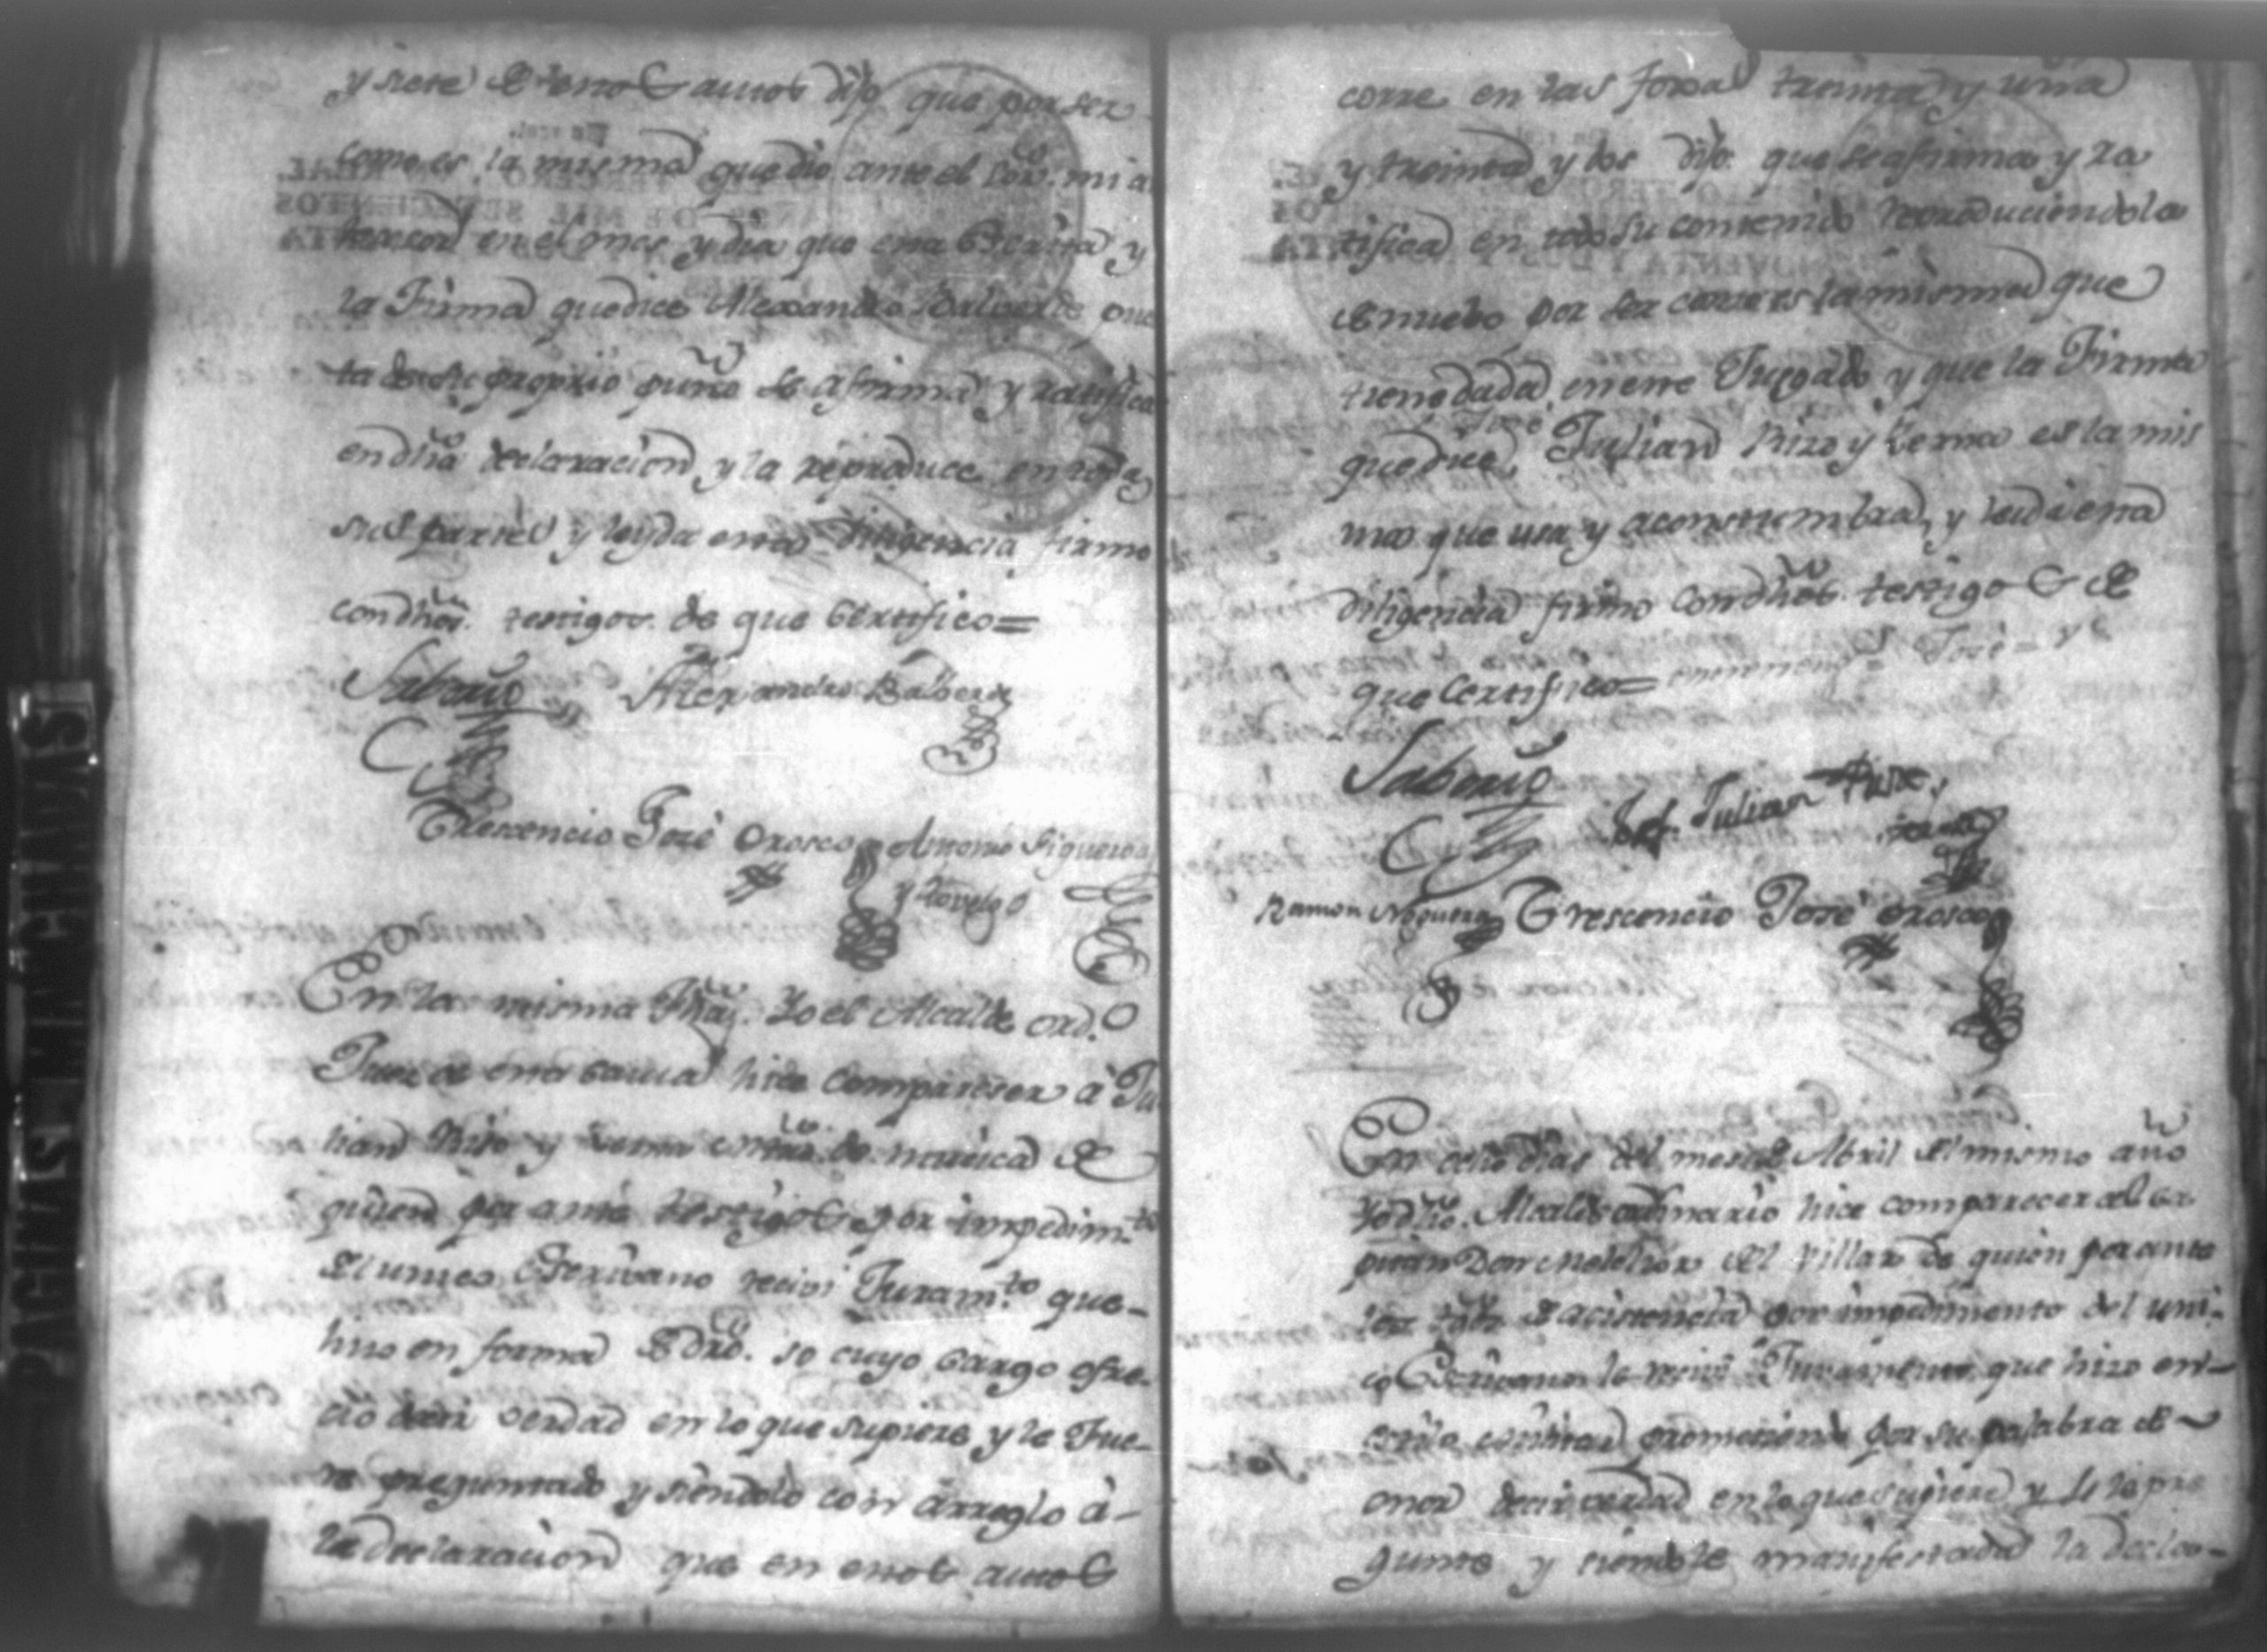 y siete de estos autos dijo que por ser
como es la misma que dio ante el Sor. mi an
tecesor en el mes y dia que esta Escrita y
la Firma que dice Alexandro Balberde pues
ta de su proprio puño se afirma y ratifica
en dha declaracion y la reproduce en todas
sus partes y leyda esta diligencia firmo
con dhos. testigos de que Certifico=
Alexandro Balbera
Crescencio José Orosco Antonio Figueroa
y
En la misma fha. Yo el Alcalde ord.o
Juez de esta causa hice compareser á Ju
lian Riso y Lerma de
quien por ante testigos por impedim.to
del unico Escrivano recivi Juram.to que-
hiso en forma de dro. so cuyo cargo ofre-
cio decir verdad en lo que supiere y le Fue-
re preguntado y siendolo con arreglo á-
la declaracion que en estos autos
corre en las foxas treinta y una
y treinta y dos dijo que se afirma y ra
tifica en todo su contenido reproduciendola
de nuebo por ser la misma que
tiene dada en este Jusgado y que la Firma
que dice, José Julian Riso y Lerma es la mis
ma que usa y aconstumbra, y leida esta
diligencia firmo con dhos. testigos de
que Certifico= José=
Jph. Julian Riso,
Lerma
Ramon Noguera Crescencio José Orosco
En ocho dias del mes de Abril del mismo año
Yo dho. Alcalde ordinario hice comparecer al Ca
pitan Don Melchor del Villar de quien por ante
los de acistencia por impedimento del uni-
co Escrivano le recivi Juramento que hizo en-
estilo militar prometiendo por su palabra de
onor decir verdad en lo que supiere y se le pre
gunte y siendole manifestada la decla-